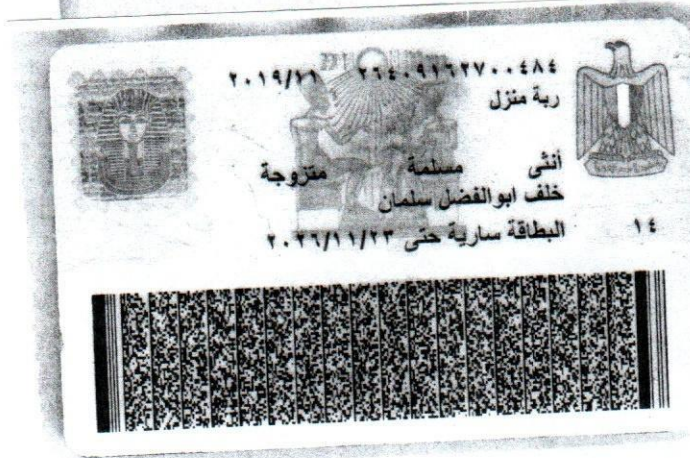 ٢٦٤٠٩١٦٢٧٠٠٤٨٤ ٢٠١٩/١١
ربة منزل
أنثى مسلمة متزوجة
خلف ابوالفضل سلمان
البطاقة سارية حتى ٢٠٢٦/١١/٢٣
١٤